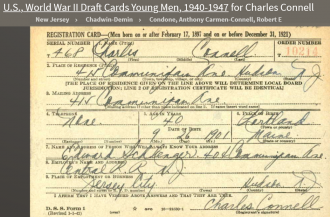 U.S., World War II Draft Cards Young Men, 1940-1947 for Charles Connell
New Jersey › Chadwin-Demio › Condone, Anthony Carmen-Connell, Robert E
REGISTRATION CARD—(Men born on or after February 17, 1897 and on or before December 31, 1921)
SERIAL NUMBER 1. NAME (Print) ORDER NUMBER
468 Charles Connell 10214
2. PLACE OF RESIDENCE (Print)
414 Communipaw Ave. Hudson N J
[THE PLACE OF RESIDENCE GIVEN ON THE LINE ABOVE WILL DETERMINE LOCAL BOARD
JURISDICTION; LINE 2 OF REGISTRATION CERTIFICATE WILL BE IDENTICAL]
3. MAILING ADDRESS
414 Communipaw Ave.
4. TELEPHONE 5. AGE IN YEARS 6. PLACE OF BIRTH
None 40 Portland
DATE OF BIRTH
9 26 1901 Maine
7. NAME AND ADDRESS OF PERSON WHO WILL ALWAYS KNOW YOUR ADDRESS
Edward 404 Communipaw Ave.
8. EMPLOYER'S NAME AND ADDRESS
Central R. R.
9. PLACE OF EMPLOYMENT OR BUSINESS
Jersey City Hudson N J
I AFFIRM THAT I HAVE VERIFIED ABOVE ANSWERS AND THAT THEY ARE TRUE.
D. S. S. Form 1
Charles Connell